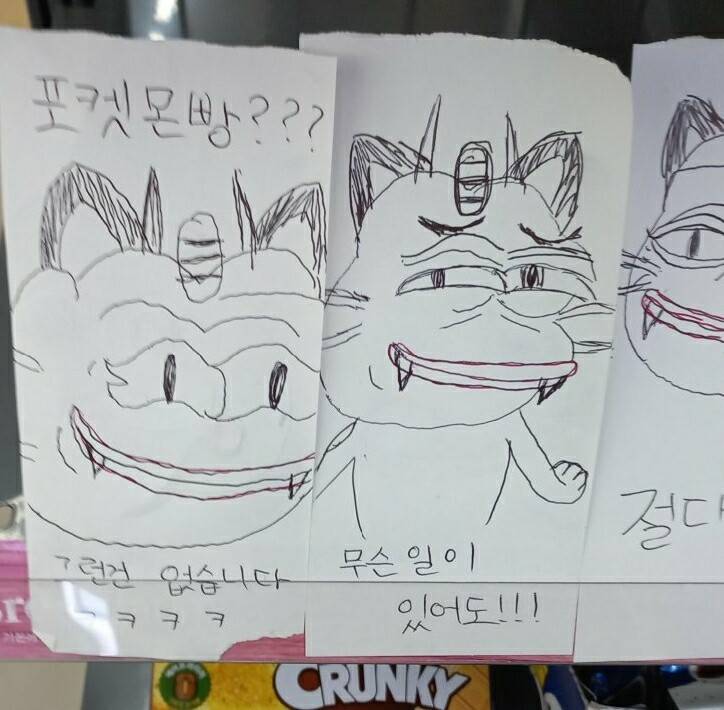 포켓몬빵???
그런건 없습니다
ㅋㅋㅋㅋ
무슨일이
있어도!!!
절대
CRUNKY